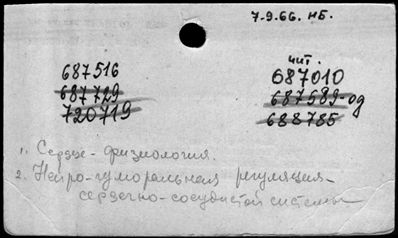 7-9.66. НБ.
687516
687729
720719
чит.
687010
687589-од
688785
1. Сердце - физиология.
2. Нейро-гуморальная регуляция
сердечно-сосудистой системы